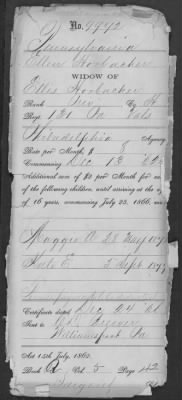 No. 9992
Pennsylvania
Ellen Horbacker
WIDOW OF
Ellis Horbacker
Rank Priv Co. H
Regt 131 Pa Vols
Philadelphia Agency
Rate per Month, $ 8
Commencing Dec 13 62
Additional sum of $2 per Month for each
of the following children, until arriving at the age
of 16 years, commencing July 25, 1866,
Maggie A 28 May 187
E. 5 Sept 187
Certificate dated Dec 24 '6
Sent to
Williamsport Pa
Act 14th July, 1862.
Book Vol. 5 Page 42